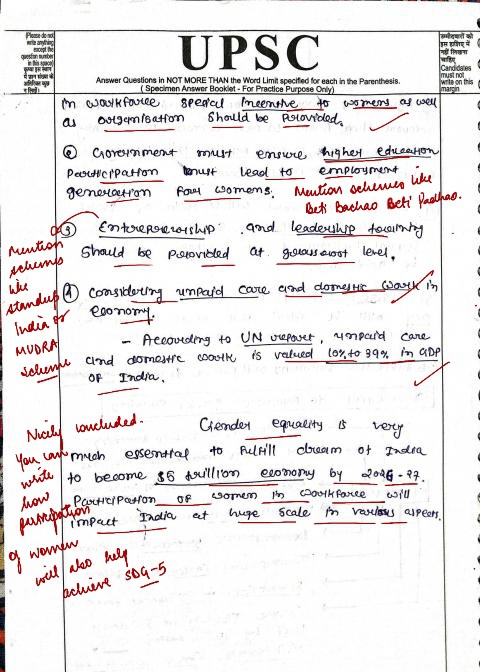 (Please do not write anything except the question number in this space)
UPSC
Answer Questions in NOT MORE THAN the Word Limit specified for each in the Parenthesis.
( Specimen Answer Booklet - For Practice Purpose Only)
उम्मीदवारों को इस हाशिए में नहीं लिखना चाहिए
Candidates must not write on this margin
in workforce special incentive to womens as well
as organisation should be Provided.
② Government must ensure higher education
participation must lead to employment
generation four womens.
Mention schemes like
Beti Bachao Beti Padhao.
③ Entreprerorship and leadership training
Should be provided at grassroot level.
Mention
schemes
like
standup
India or
MUDRA
scheme
④ Considering unpaid care and domestic work in
economy.
- According to UN report, unpaid care
and domestic work is valued 10% to 39% in GDP
of India.
Nicely concluded.
You can
write
how
participation
of women
will also help
achieve SDG-5
Gender equality is very
much essential to fulfill dream of India
to become $5 trillion economy by 2026-27.
Participation of women in workforce will
impact India at huge scale in various aspects.